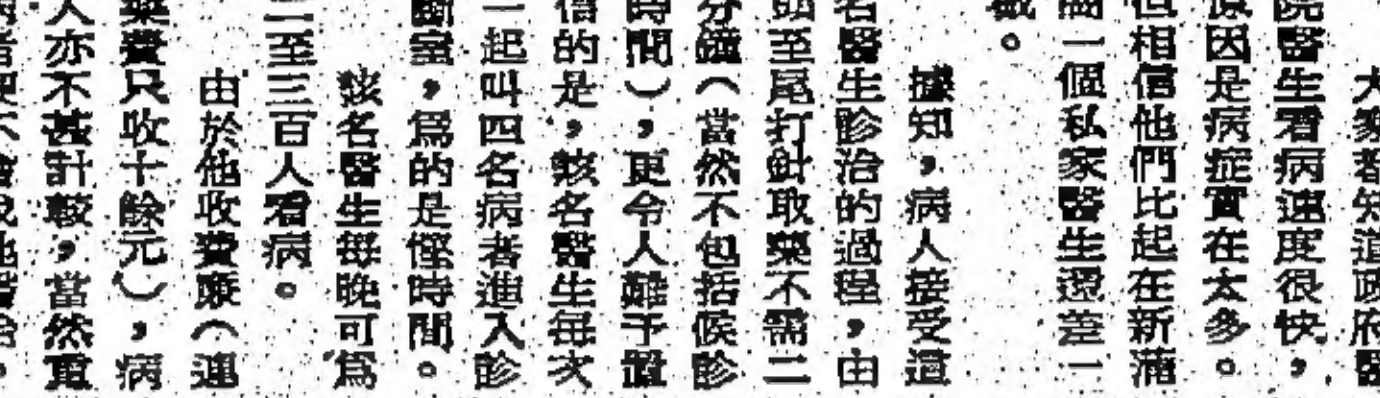 大家都知道政府醫
院醫生看病速度很快，
原因是病症實在太多。
但相信他們比起在新蒲
崗一個私家醫生還差一
截。
據知，病人接受這
名醫生診治的過程，由
頭至尾打針取藥不需二
分鐘（當然不包括候診
時間），更令人難予置
信的是，該名醫生每次
一起叫四名病者進入診
斷室，爲的是慳時間。
該名醫生每晚可爲
二至三百人看病。
由於他收費廉（連
藥費只收十餘元），病
人亦不甚計較，當然重